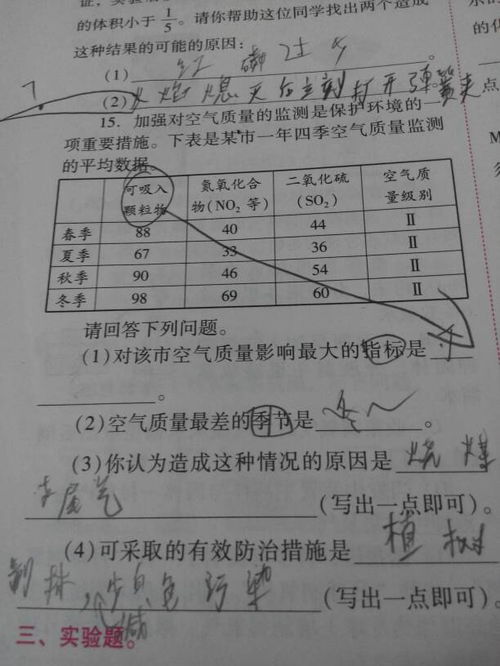 的体积小于1/5。请你帮助这位同学找出两个造成
这种结果的可能的原因:
(1) 红磷过少。
(2) 火焰熄灭后立刻打开弹簧夹
15. 加强对空气质量的监测是保护环境的一
项重要措施。下表是某市一年四季空气质量监测
的平均数据。
可吸入颗粒物 氮氧化合物(NO2 等) 二氧化硫(SO2) 空气质量级别
春季 88 40 44 Ⅱ
夏季 67 33 36 Ⅱ
秋季 90 46 54 Ⅱ
冬季 98 69 60 Ⅱ
请回答下列问题。
(1)对该市空气质量影响最大的指标是
。
(2)空气质量最差的季节是 冬~ 。
(3)你认为造成这种情况的原因是 烧煤
尾气 (写出一点即可)。
(4)可采取的有效防治措施是 植树
(写出一点即可)。
三、实验题。